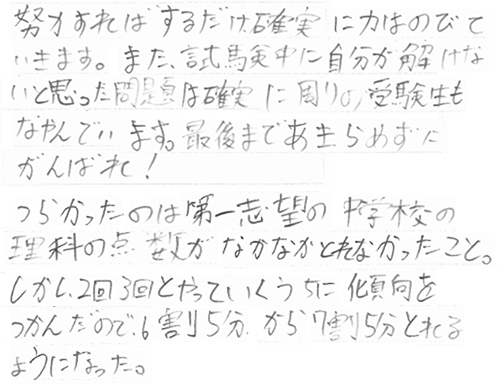 努力すればするだけ確実に力はのびて
いきます。また、試験中に自分が解けな
いと思った問題は確実に周りの受験生も
なやんでいます。最後まであきらめずに
がんばれ！
つらかったのは第一志望の中学校の
理科の点数がなかなかとれなかったこと。
しかし、2回3回とやっていくうちに傾向を
つかんだので、6割5分から7割5分とれる
ようになった。